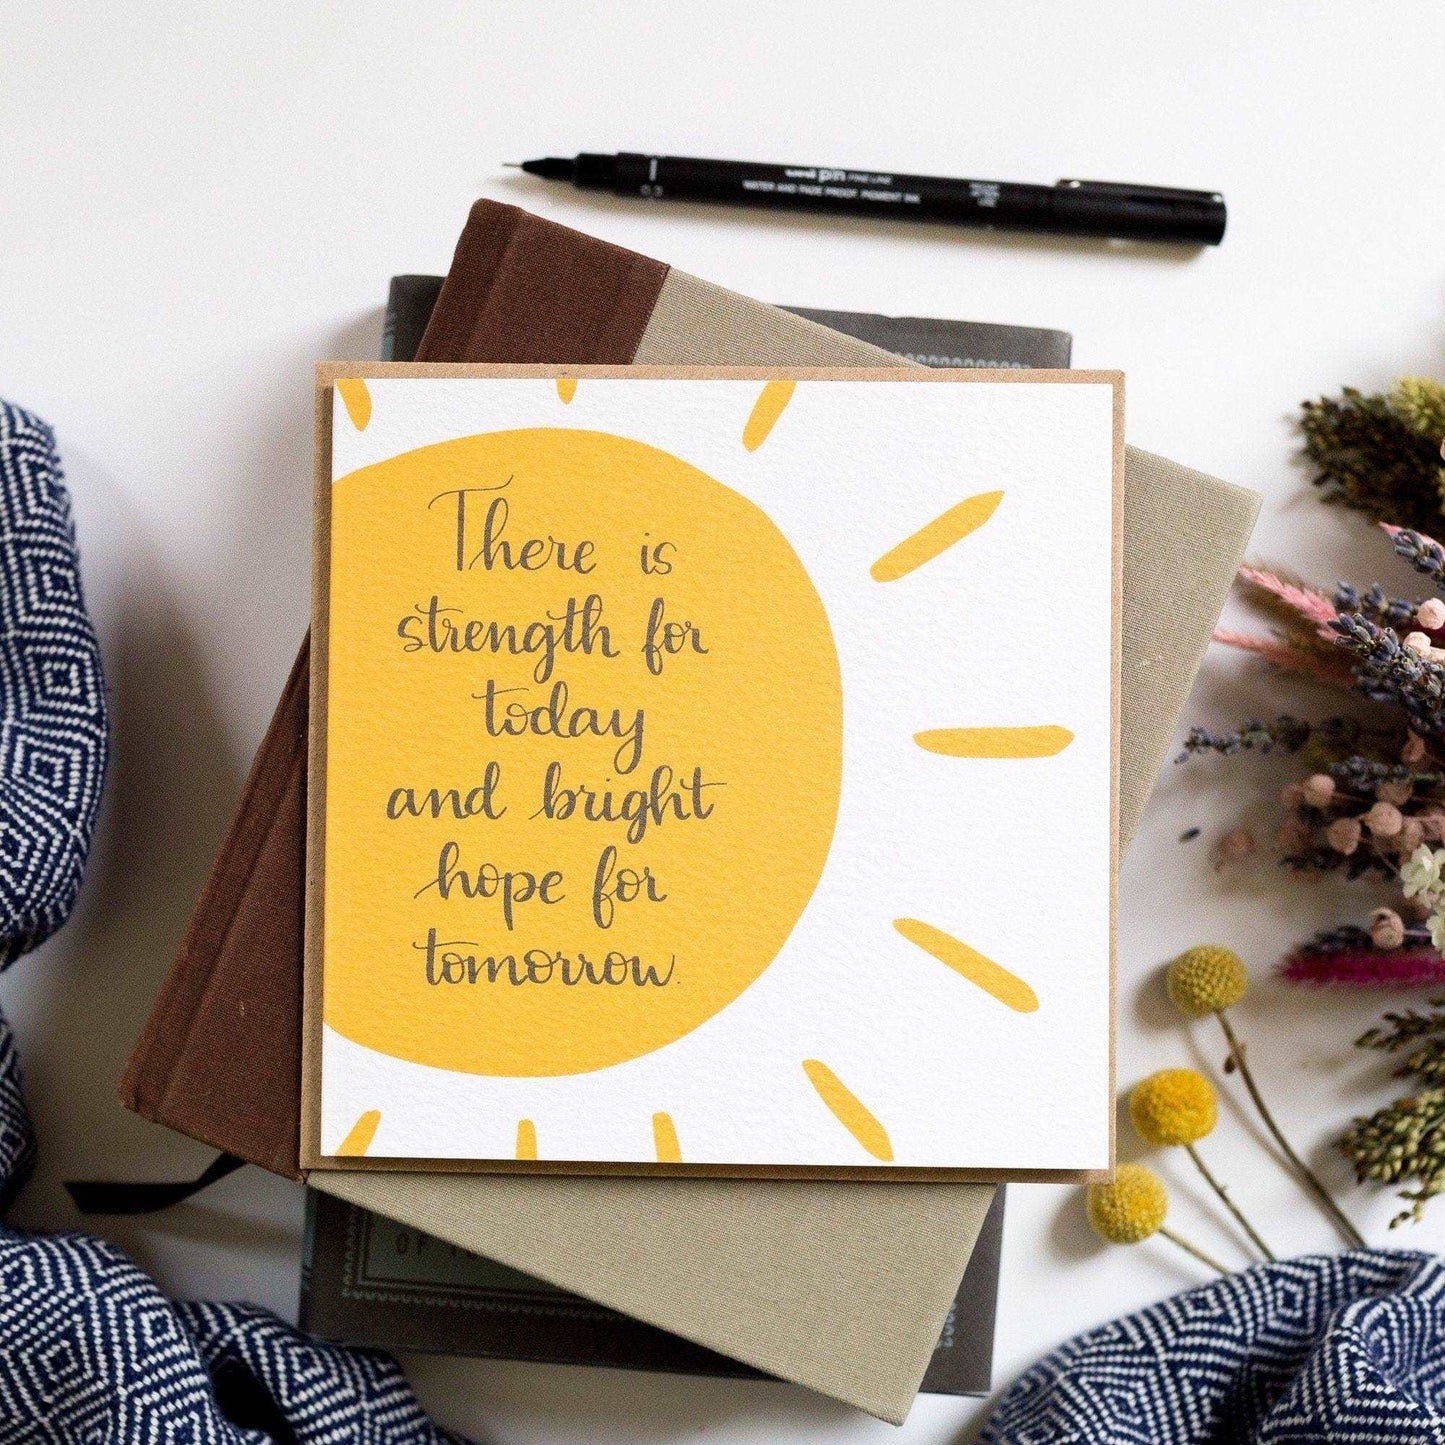 uni pin FINE LINE
0.2
WATER AND FADE PROOF PIGMENT INK
There is
strength for
today
and bright
hope for
tomorrow.
OF